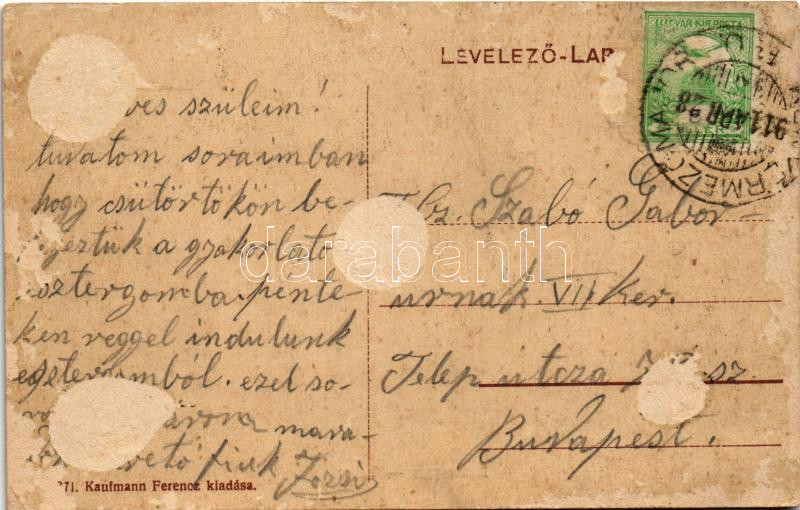 LEVELEZŐ-LAP
MAGYAR KIR. POSTA
911 APR 28
ves szüleim!
tudatom soraimban
hogy csütörtökön be-
geztük a gyakorlato
osztergomba. pénte-
ken reggel indulunk
esztergomból. ezel so-
várova mara-
vető fiuk Jozsi
Tbz. Szabó Gabor
urnak. VII Ker.
Telep utcza sz
Budapest.
71. Kaufmann Ferencz kiadása.
darabanth